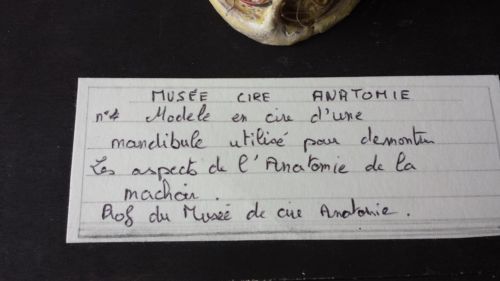 MUSÉE CIRE ANATOMIE
n°4 Modele en cire d'une
mandibule utilisé pour demontrer
Les aspects de l'Anatomie de la
machoir.
Prof du Museé de cire Anatomie.